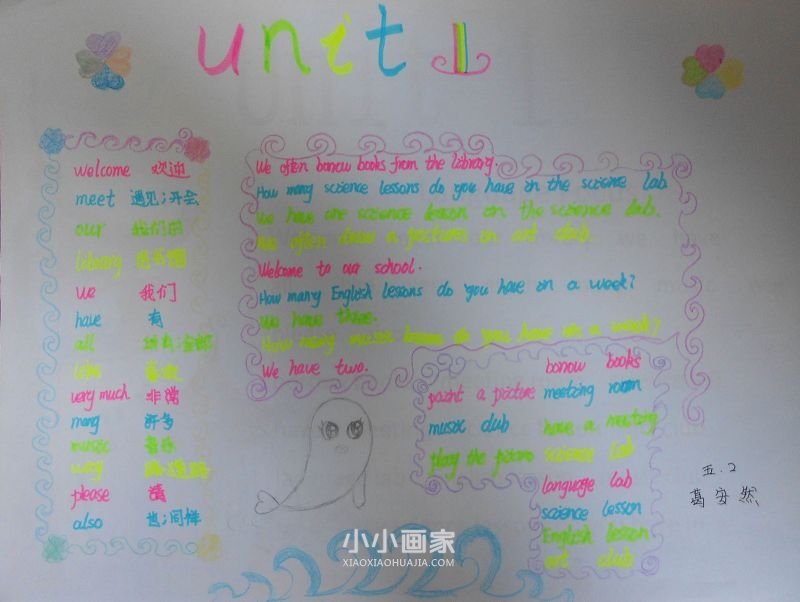 unit 1
welcome 欢迎
meet 遇见;开会
our 我们的
library 图书馆
we 我们
have 有
all
like 喜欢
very much 非常
many 许多
music 音乐
way
please 请
also 也;同样
We often borrow books from the library.
How many science lessons do you have in the science lab
We have one science lesson in the science lab.
We often draw a pictures in art club.
Welcome to our school.
How many English lessons do you have in a week?
We have three.
How many music lessons do you have in a week?
We have two.
borrow books
paint a picture meeting room
music club have a meeting
play the piano science lab
language lab
science lesson
English lesson
art club
五.2
葛安然
小小画家
XIAOXIAOHUAJIA.COM